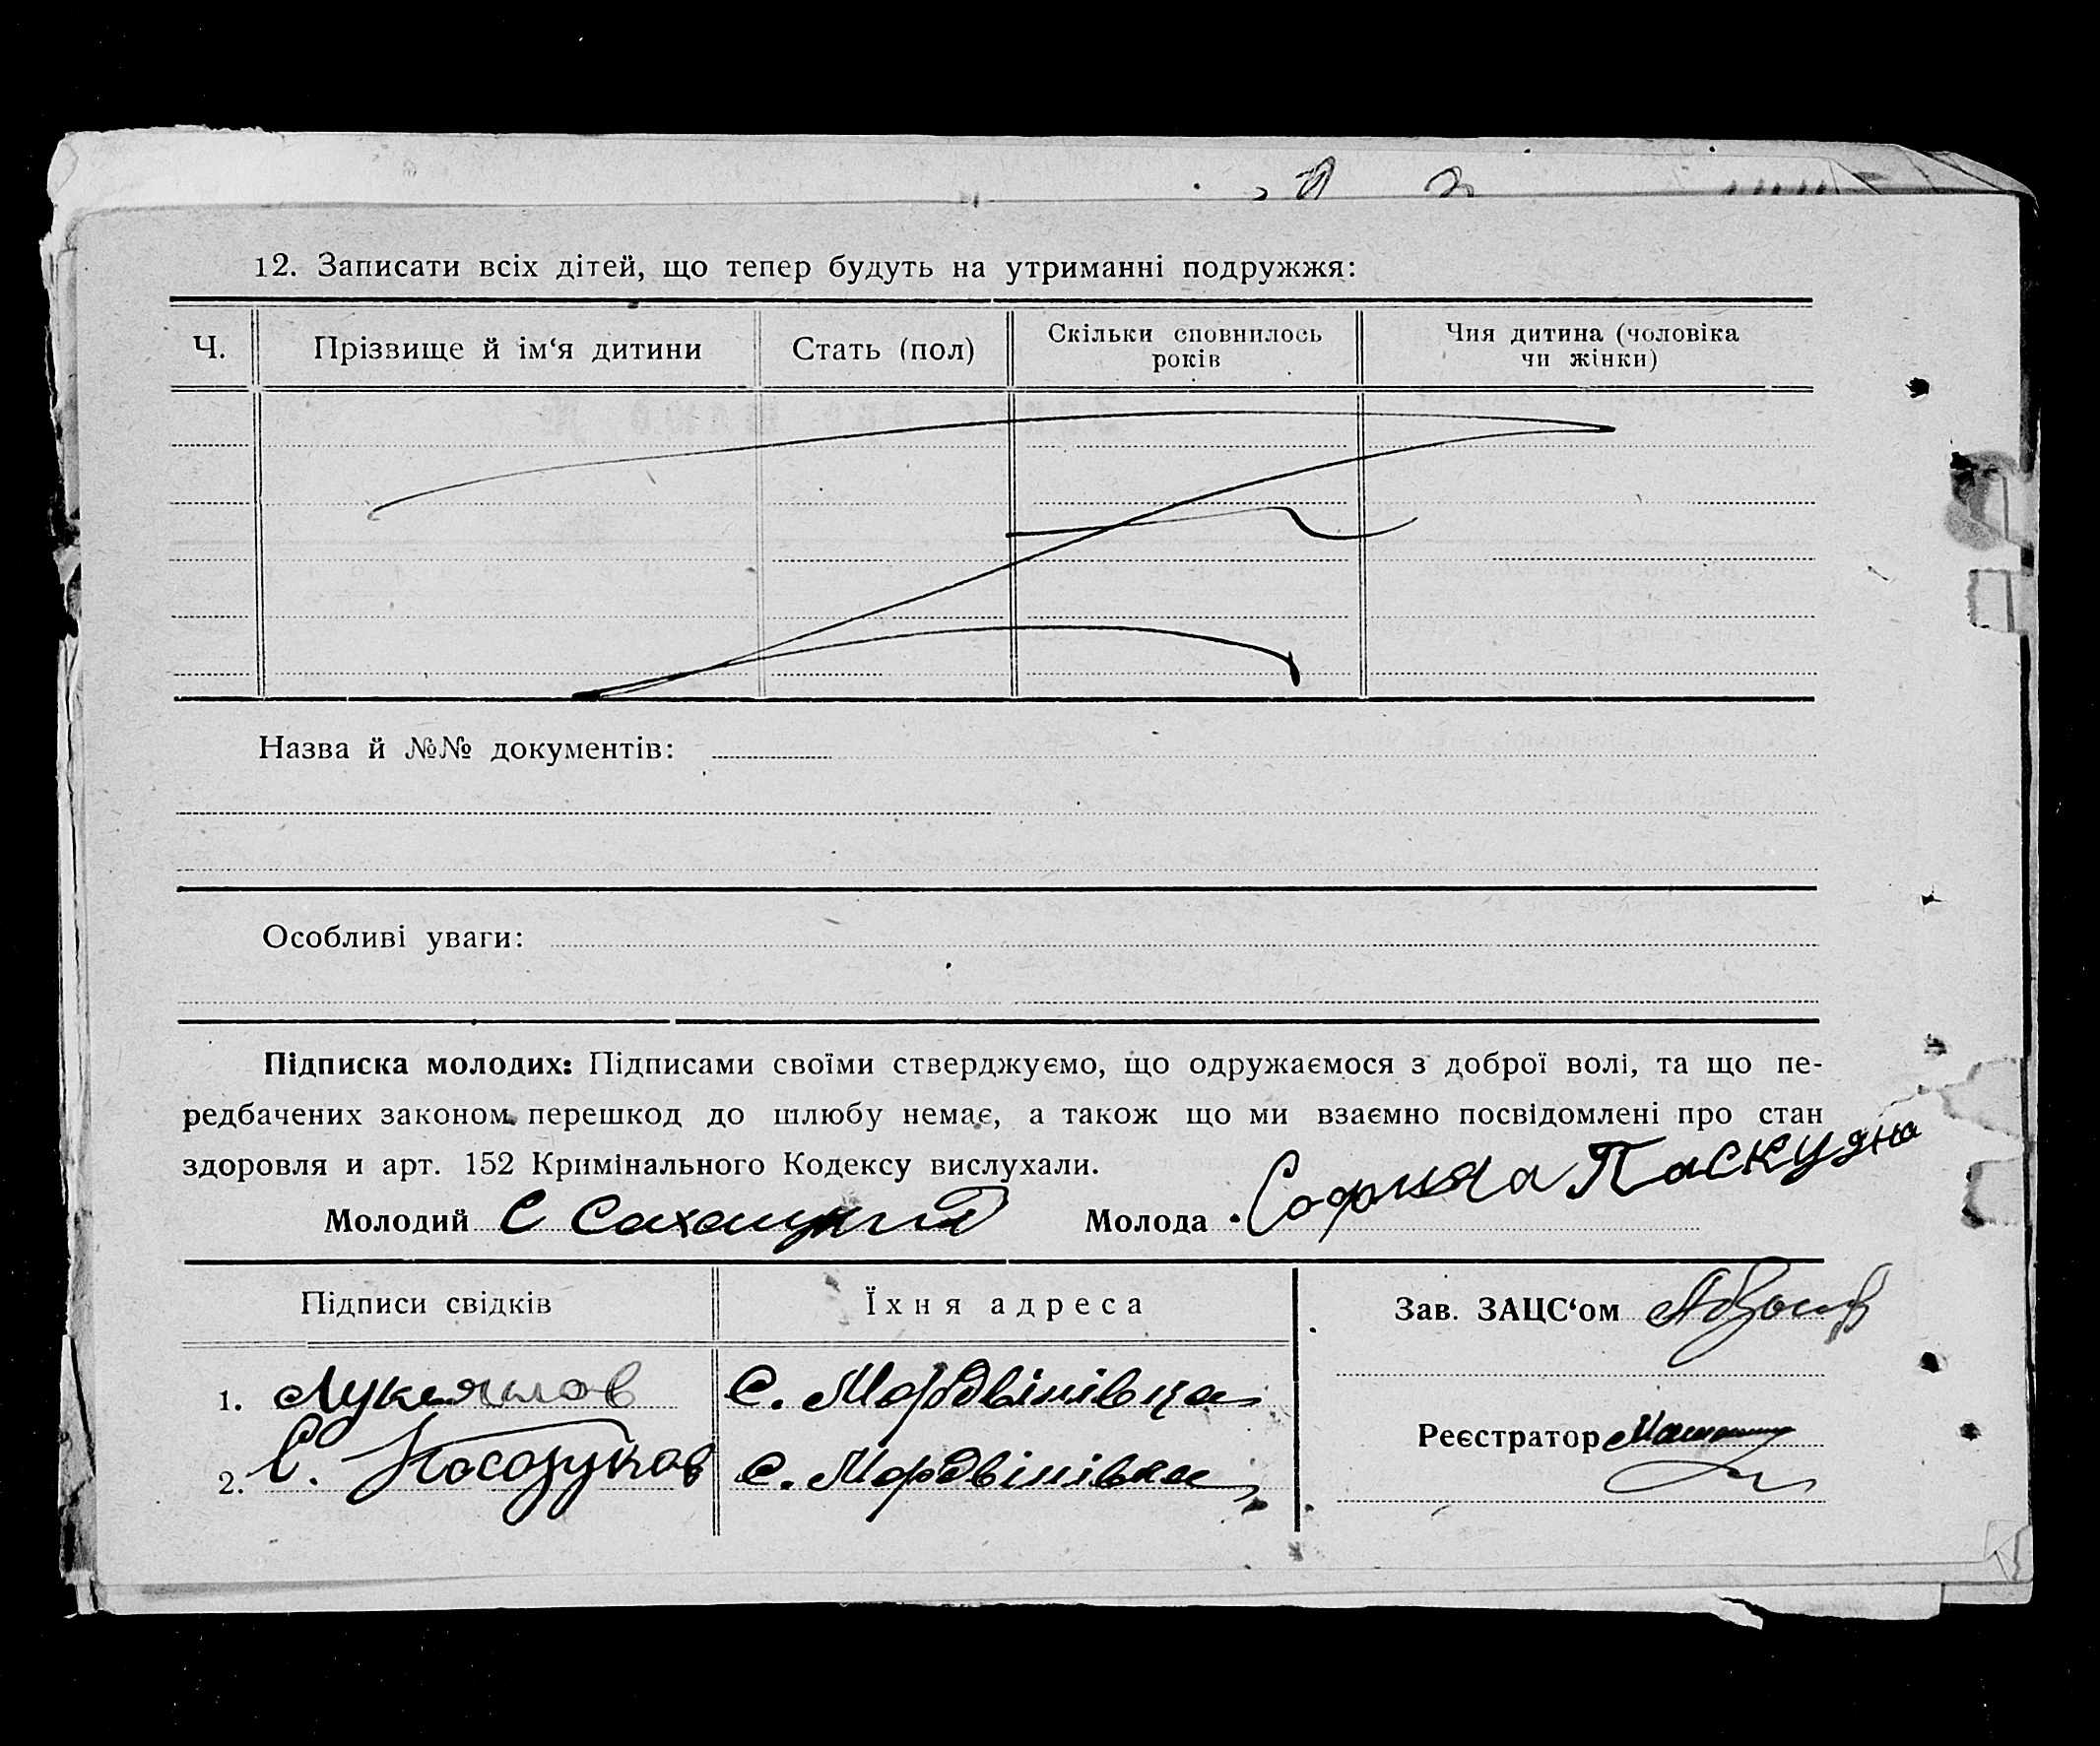 12. Записати всіх дітей, що тепер будуть на утриманні подружжя:
Ч.
Прізвище й ім‘я дитини
Стать (пол)
Скільки сповнилось
років
Чия дитина (чоловіка
чи жінки)
Назва й №№ документів:
Особливі уваги:
Підписка молодих: Підписами своїми стверджуємо, що одружаємося з доброї волі, та що пе-
редбачених законом перешкод до шлюбу немає, а також що ми взаємно посвідомлені про стан
здоровля и арт. 152 Кримінального Кодексу вислухали.
Молодий С Сахацкий
Молода Паскудна
Підписи свідків
Їхня адреса
Зав. ЗАЦС‘ом
1. Лукеянов с. Мордвінівка
Реєстратор
2. С. с. Мордвінівка